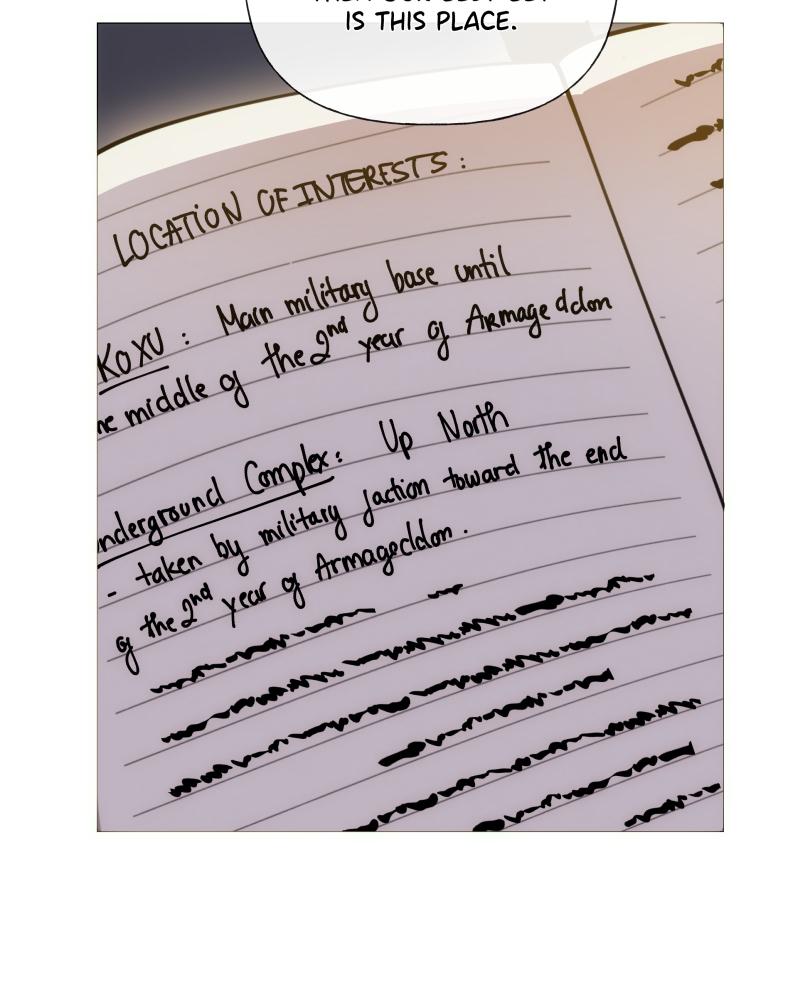 IS THIS PLACE.
LOCATION OF INTERESTS:
KOXU: Main military base until
he middle of the 2nd year of Armageddon
nderground Complex: Up North
- taken by military faction toward the end
of the 2nd year of Armageddon.